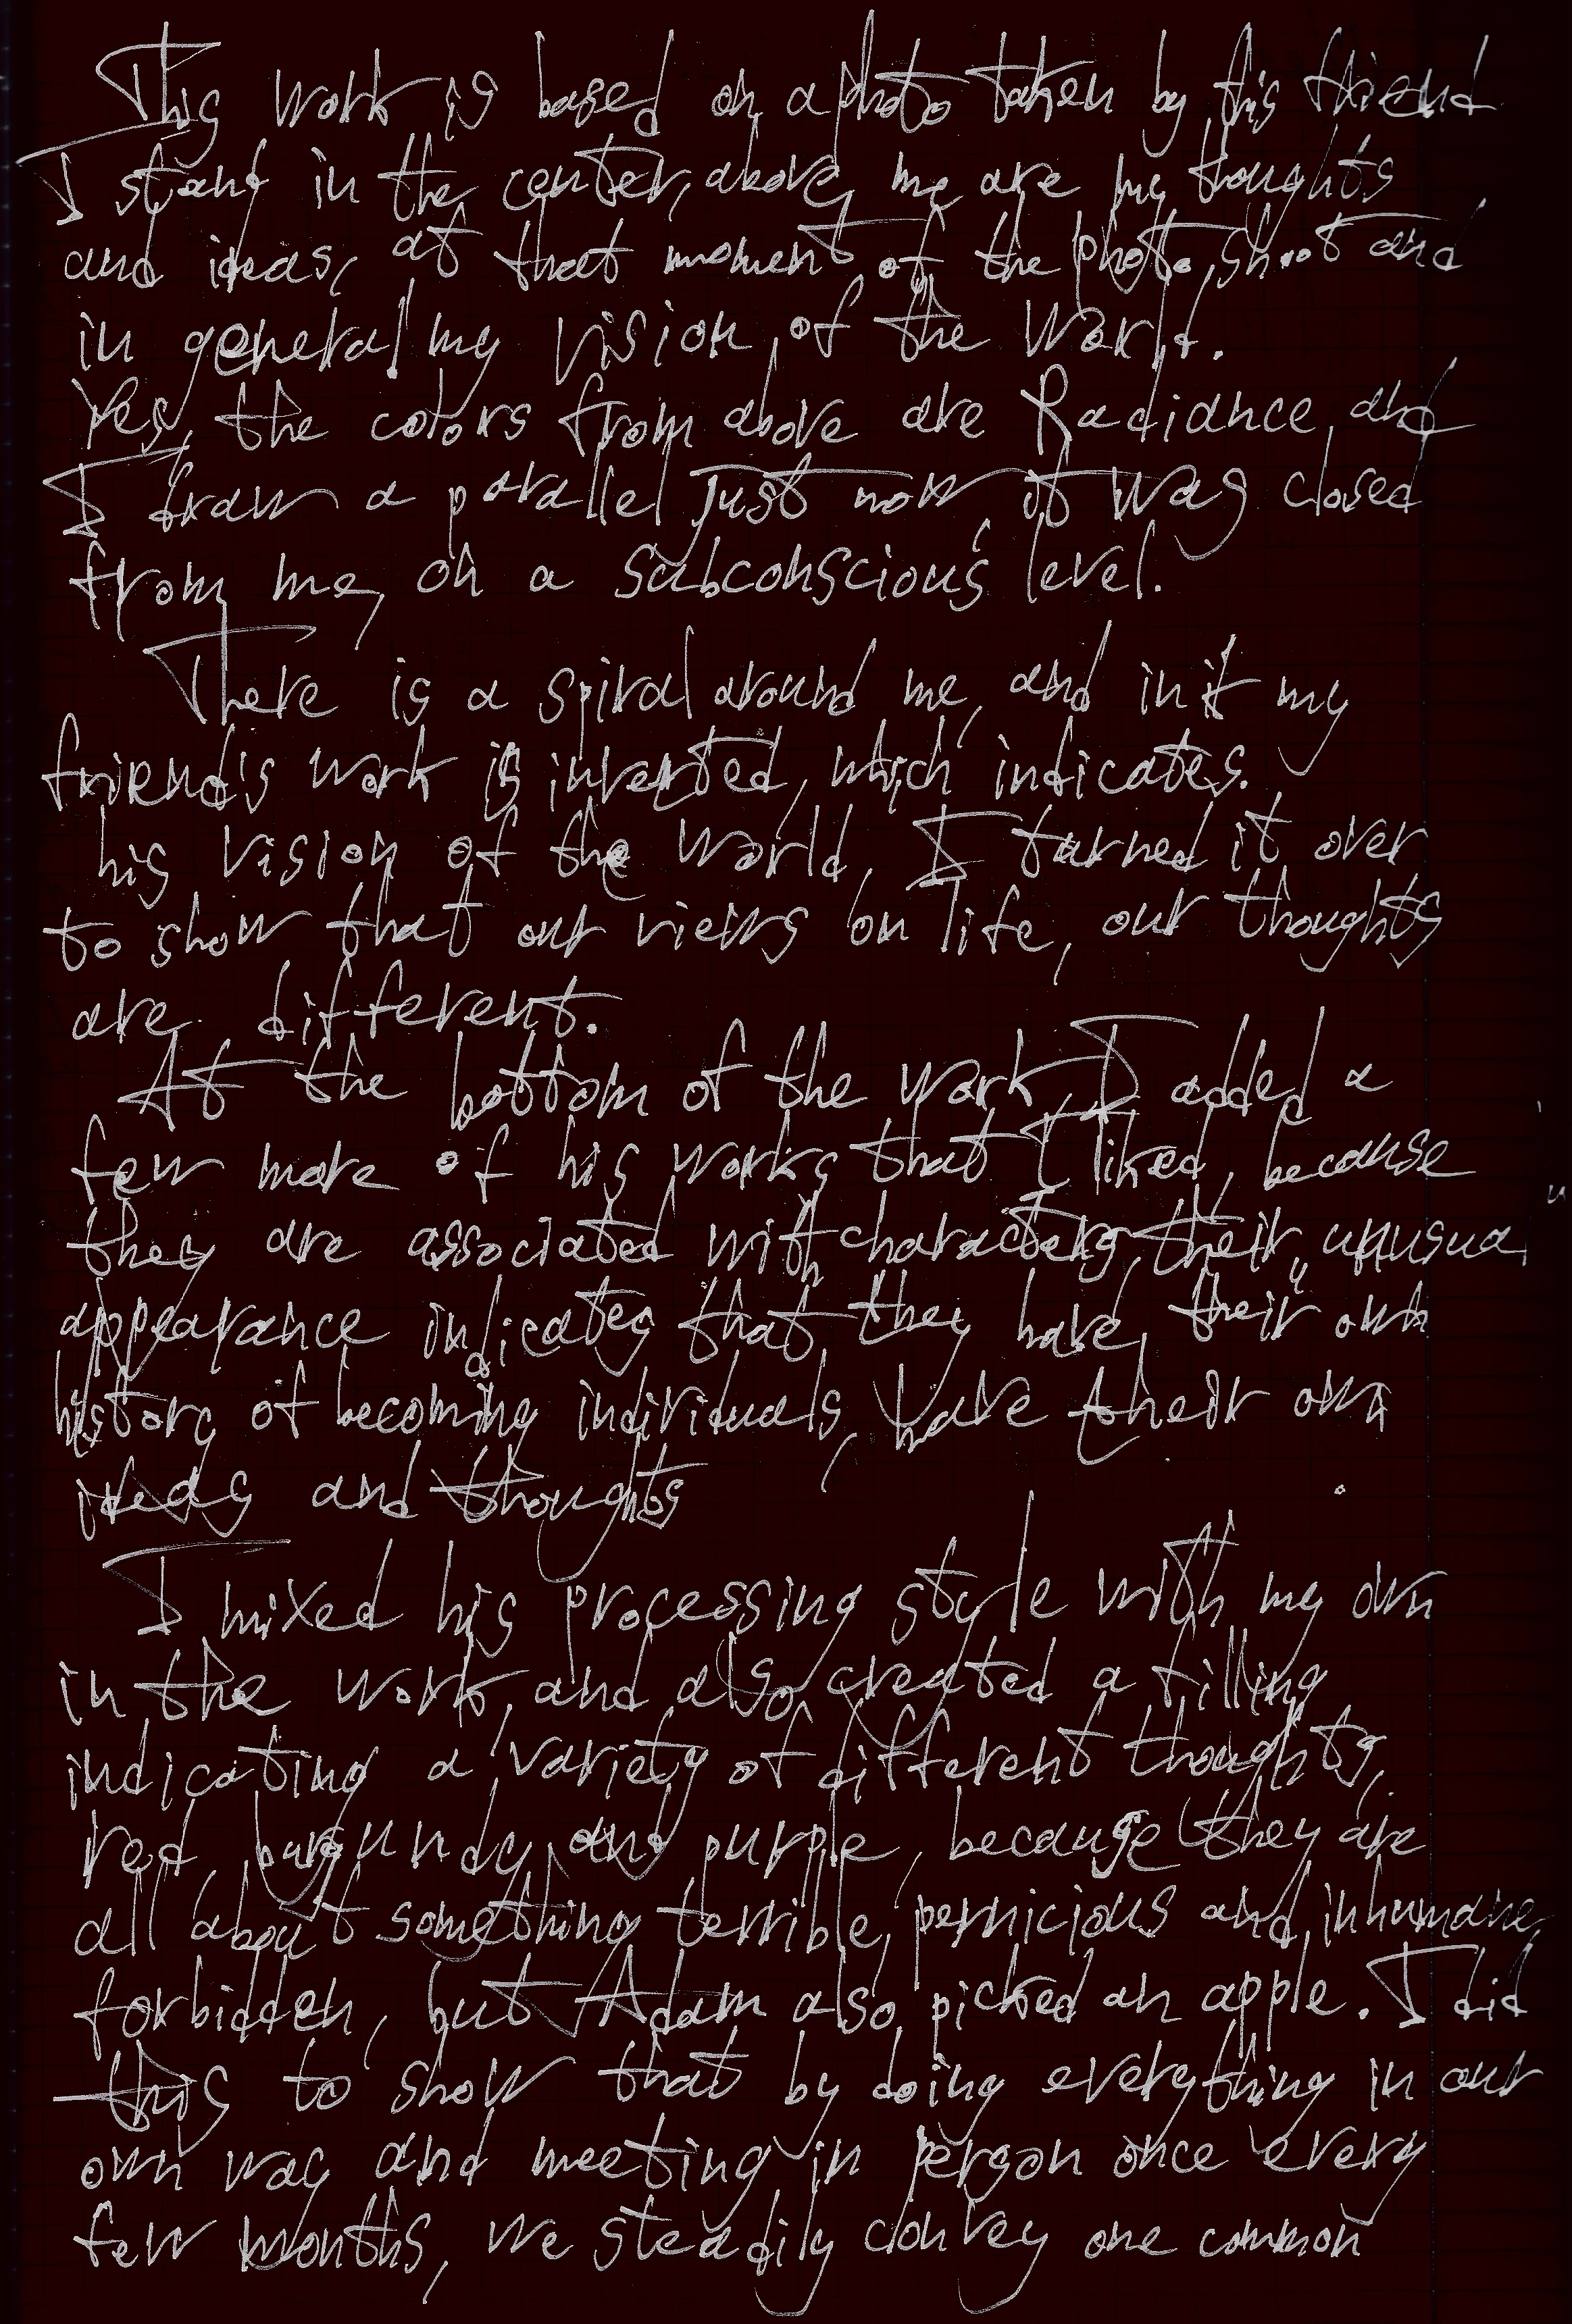 This work is based on a photo taken by this friend
I stand in the center, above me are my thoughts
and ideas, at that moment of the photo shoot and
in general my vision of the world.
Yes, the colors from above are Radiance, and
I draw a parallel just now, it was closed
from me, on a subconscious level.
There is a spiral around me, and in it my
friend's work is inverted, which indicates.
his vision of the world, I turned it over
to show that our views on life, our thoughts
are different.
At the bottom of the work I added a
few more of his works that I liked, because
they are associated with characters, their unusual
appearance indicates that they have their own
history of becoming individuals, have their own
ideas and thoughts
I mixed his processing style with my own
in the work, and also created a filling
indicating a variety of different thoughts,
red, burgundy, and purple, because they are
all about something terrible, pernicious and inhumane,
forbidden, but Adam also picked an apple. I did
this to show that by doing everything in our
own way and meeting in person once every
few months, we steadily convey one common